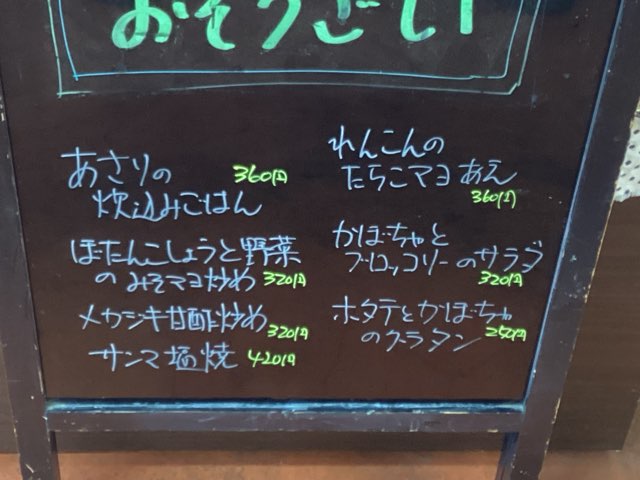 おそうざい
あさりの 360円
炊込みごはん
ぼたんこしょうと野菜
のみそマヨ炒め 320円
メカジキ甘酢炒め 320円
サンマ塩焼 420円
れんこんの
たらこマヨあえ
360円
かぼちゃと
ブロッコリーのサラダ
320円
ホタテとかぼちゃ
のグラタン 250円